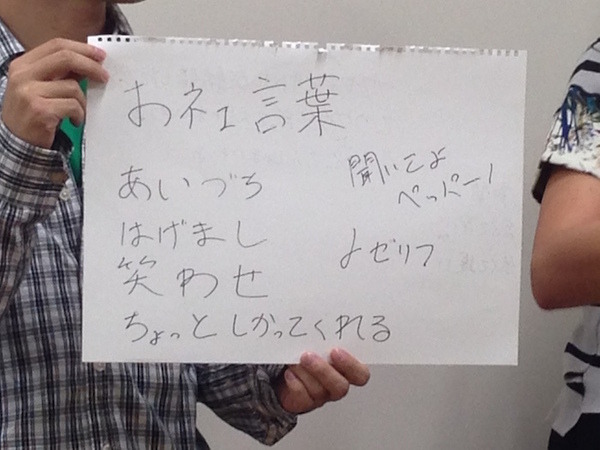 おネエ言葉
あいづち
はげまし
笑わせ
ちょっとしかってくれる
聞いてよ
ペッパー!
よゼリフ